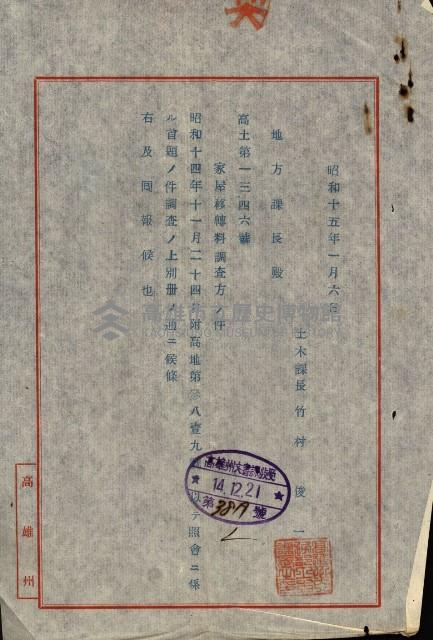 昭和十五年一月六日
土木課長 竹村俊一
地方課長殿
高土第一三四六號
家屋移轉料調査方ノ件
昭和十四年十一月二十四日附高地第 八壹九 テ照會ニ係
ル首題ノ件調査ノ上別册ノ通ニ候條
右及囘報候也
高雄州
14.12.21
第 號
高雄市立歷史博物館